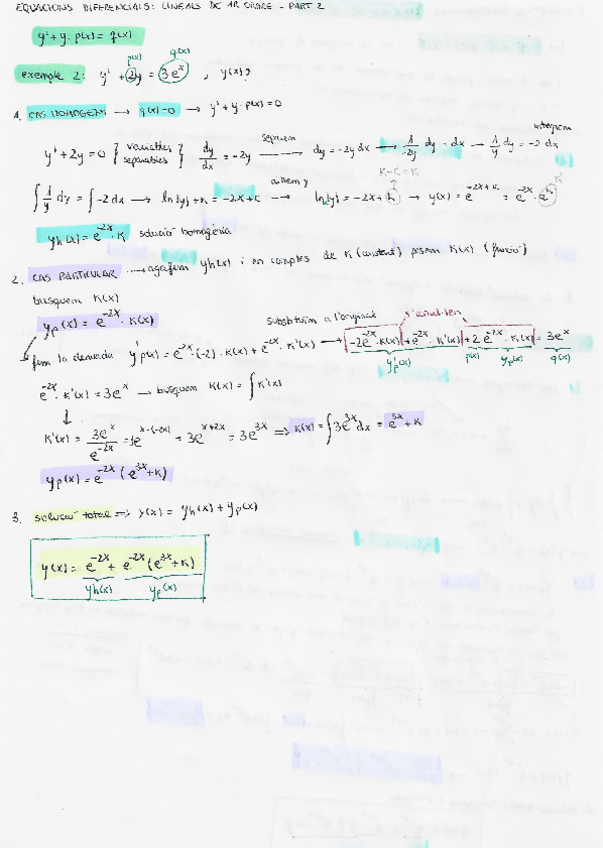 EQUACIONS DIFERENCIALS: LINEALS DE 1R ORDRE - PART 2
y' + y · p(x) = q(x)
exemple 2: y' + 2y = 3e^x , y(x)?
p(x) q(x)
1. CAS HOMOGENI → q(x)=0 → y' + y · p(x) = 0
y' + 2y = 0 } variables separables } dy/dx = -2y separem → dy = -2y dx → 1/-2y dy = dx → 1/y dy = -2 dx integrem
∫ 1/y dy = ∫ -2 dx → ln|y| + K = -2x + C → ln|y| = -2x + K → y(x) = e^{-2x+K} = e^{-2x} · e^K
K - C = K
yh(x) = e^{-2x} · K solució homogènia
2. CAS PARTICULAR → agafem yh(x) i en comptes de K (constant) posem K(x) (funció)
busquem K(x)
yp(x) = e^{-2x} · K(x)
fem la derivada y'p(x) = e^{-2x} · (-2) · K(x) + e^{-2x} · K'(x) substituim a l'original → -2e^{-2x} · K(x) + e^{-2x} · K'(x) + 2 e^{-2x} · K(x) = 3e^x
s'anul·len
y'p(x) p(x) yp(x) q(x)
e^{-2x} · K'(x) = 3e^x → busquem K(x) = ∫ K'(x)
K'(x) = 3e^x / e^{-2x} = 3e^{x-(-2x)} = 3e^{x+2x} = 3e^{3x} ⇒ K(x) = ∫ 3e^{3x} dx = e^{3x} + K
yp(x) = e^{-2x} (e^{3x} + K)
3. solució total ⇒ y(x) = yh(x) + yp(x)
y(x) = e^{-2x} + e^{-2x} (e^{3x} + K)
yh(x) yp(x)